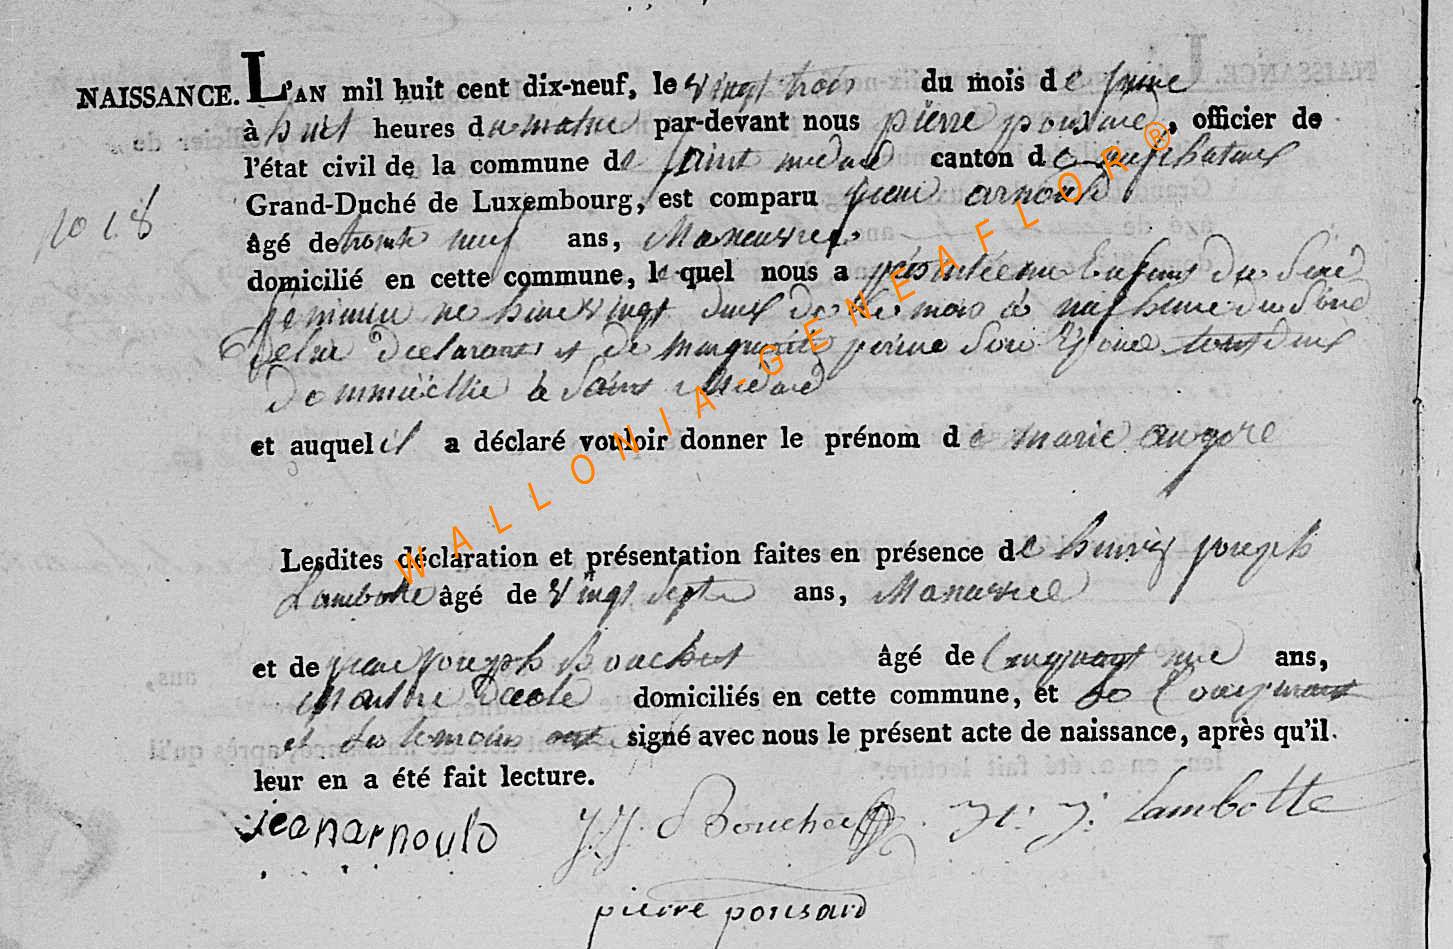 NAISSANCE. L'AN mil huit cent dix-neuf, le vingt trois du mois de juin
à huit heures du matin par-devant nous pierre ponsard, officier de
l'état civil de la commune de saint medard canton de neufchateaux
Grand-Duché de Luxembourg, est comparu jean arnould
no 18
âgé de trente neuf ans, Maneuvre
domicilié en cette commune, lequel nous a présentée un Enfant du Sexe
féminin né hiere vingt deux de ce mois à neuf heure du Soire
de lui declarant et de Margueritte son Epouse tout deux
Dommicillié à Saint Medard
et auquel il a déclaré vouloir donner le prénom de marie
Lesdites déclaration et présentation faites en présence de henry joseph
Lambotte âgé de vingt Septe ans, Manuvre
et de jean joseph Bouchet âgé de ans,
domiciliés en cette commune, et
et les temoins ont signé avec nous le présent acte de naissance, après qu'il
leur en a été fait lecture.
jean arnould J. J. Bouchet H: J: Lambotte
pierre ponsard
WALLONIA-GENEAFLOR®